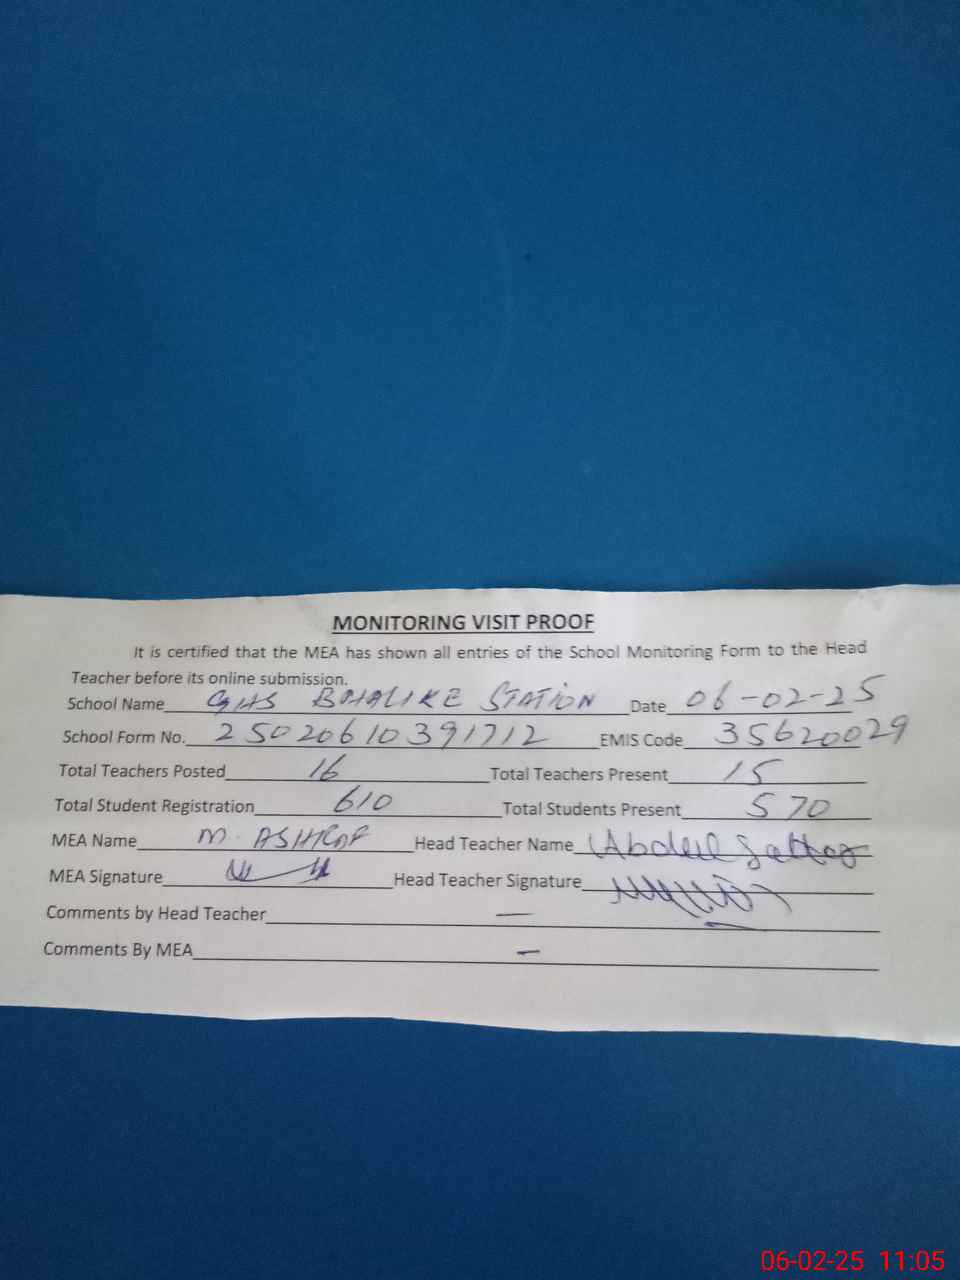 MONITORING VISIT PROOF
It is certified that the MEA has shown all entries of the School Monitoring Form to the Head
Teacher before its online submission.
School Name GHS BHALIKE STATION Date 06-02-25
School Form No. 25020610391712 EMIS Code 35620029
Total Teachers Posted 16 Total Teachers Present 15
Total Student Registration 610 Total Students Present 570
MEA Name M. ASHRAF Head Teacher Name Abdul Sattar
MEA Signature Head Teacher Signature
Comments by Head Teacher —
Comments By MEA —
06-02-25 11:05